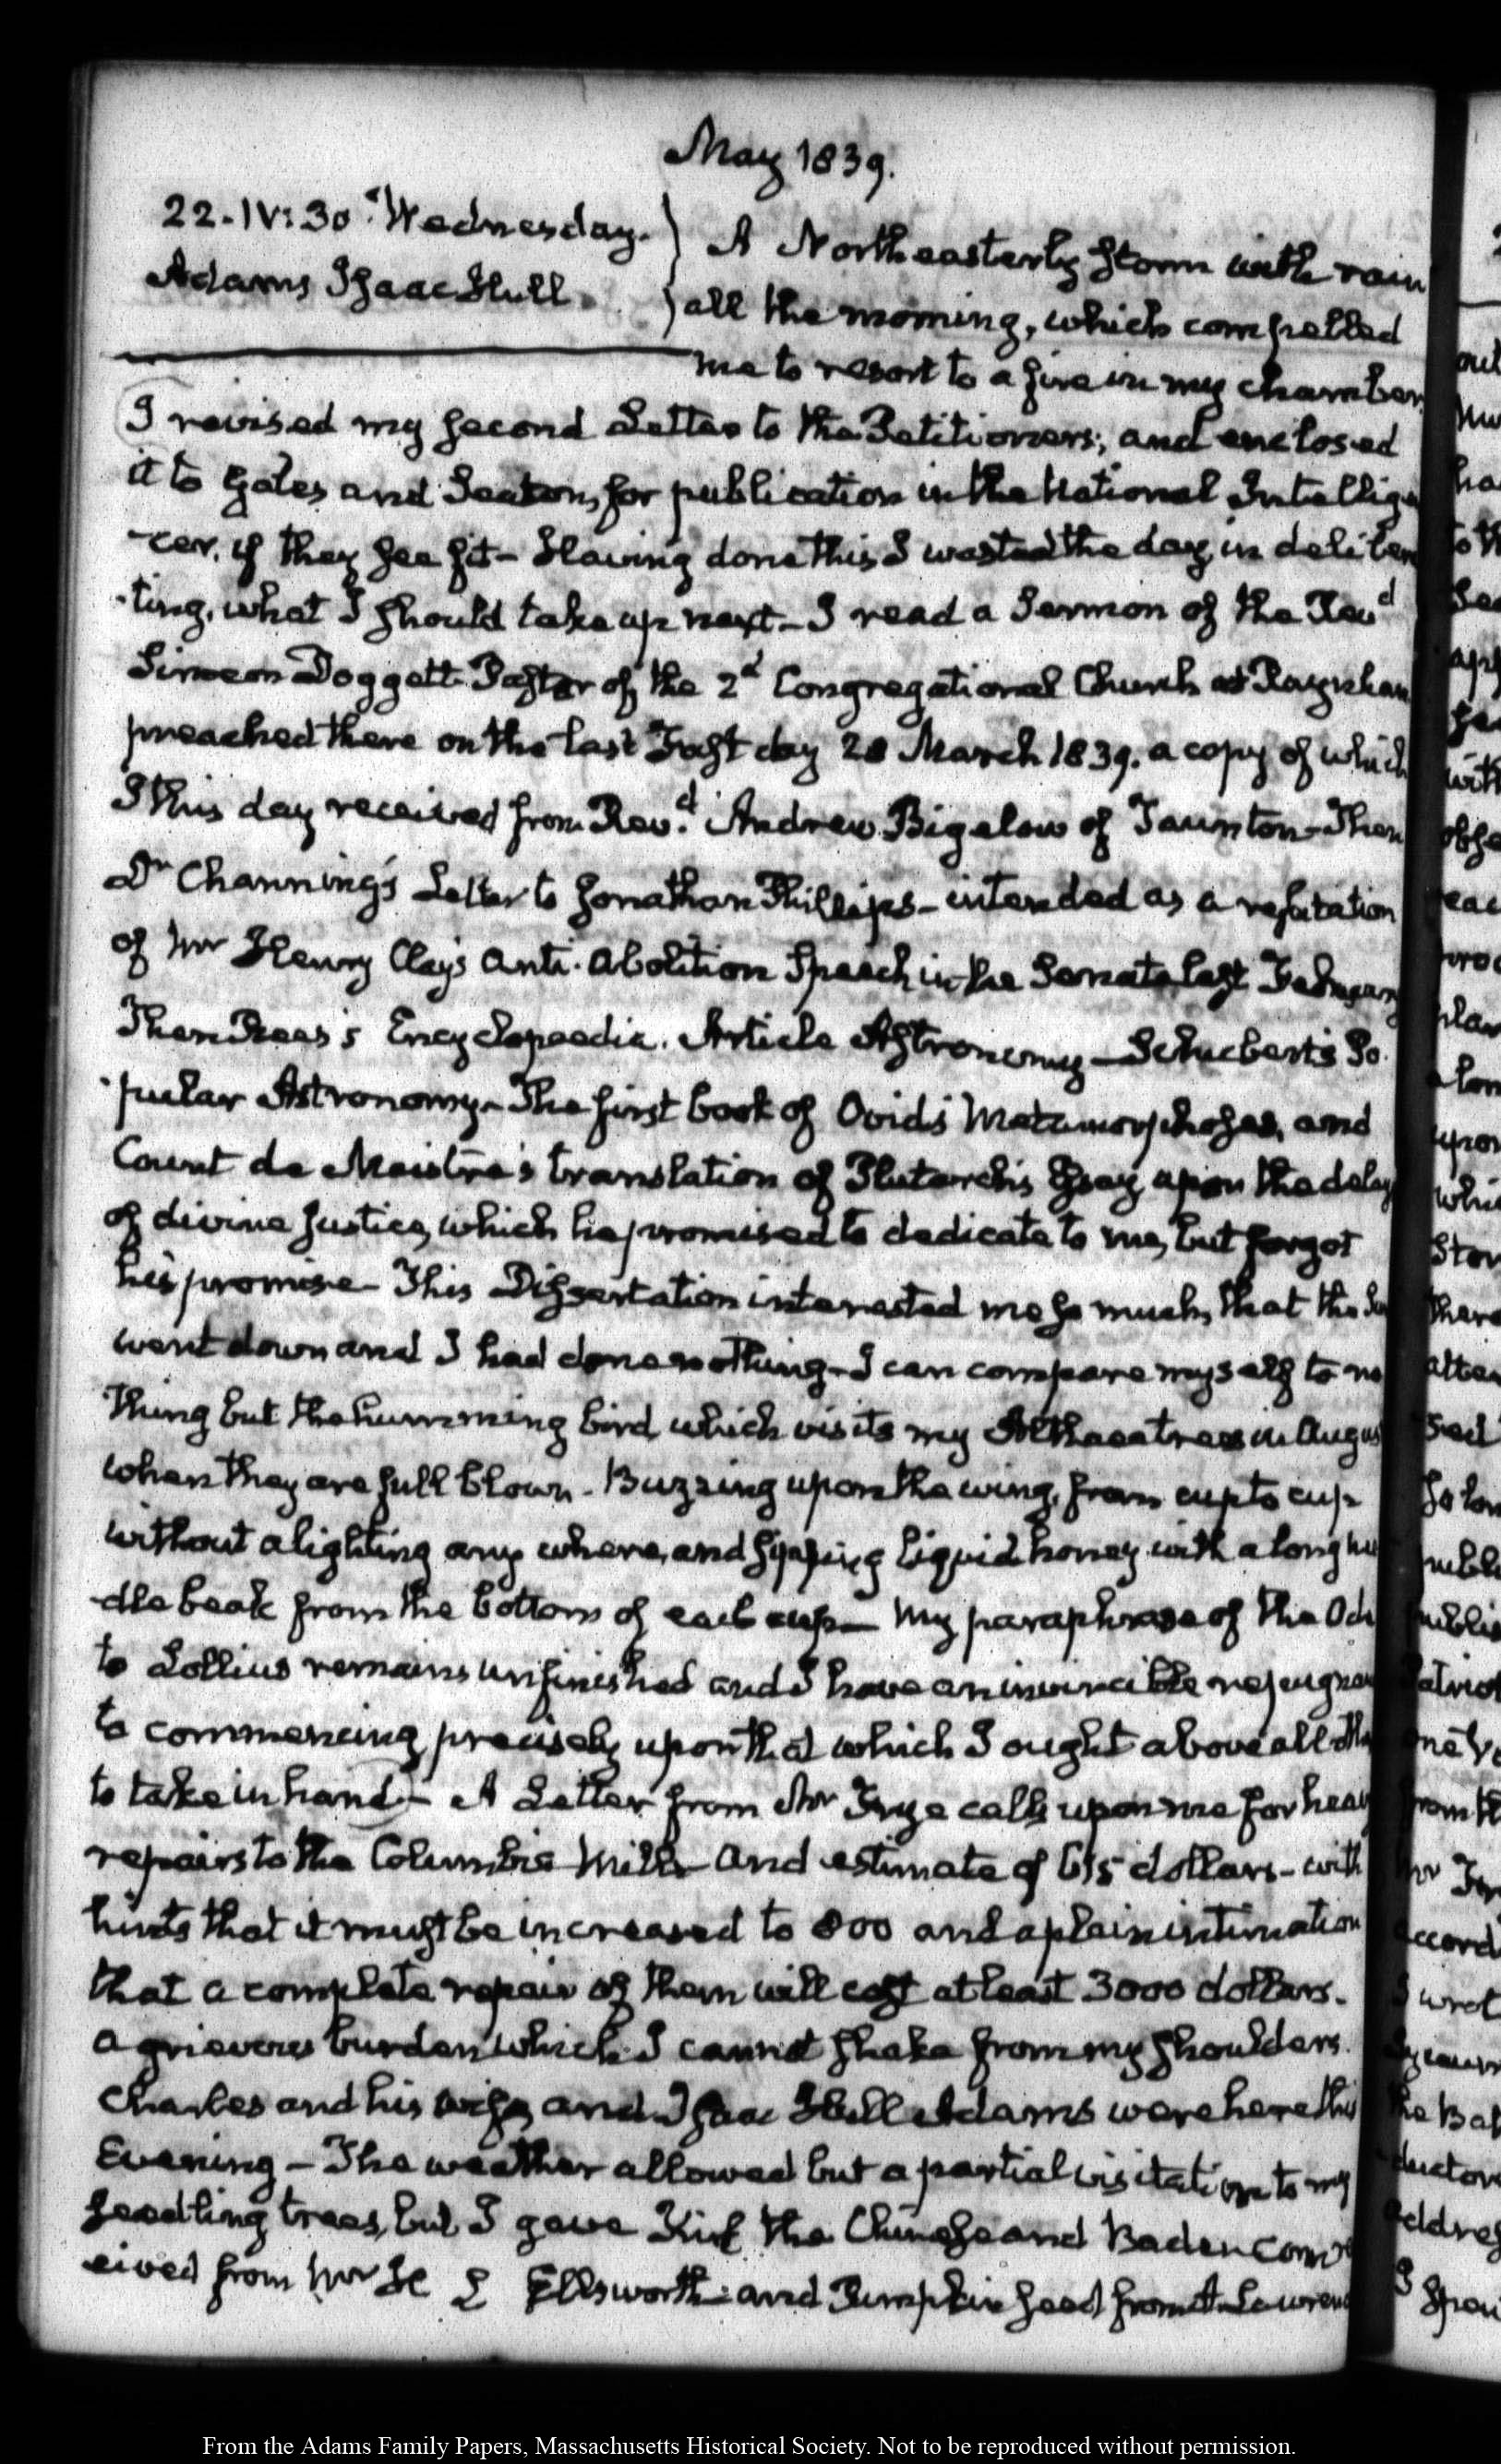 May 1839.
22. IV:30. Wednesday. A North easterly storm with rain
Adams Isaac Hull. all the morning, which compelled
me to resort to a fire in my chamber.
I revised my second Letter to the Petitioners; and enclosed
it to Gales and Seaton, for publication in the National Intellige
-cer, if they see fit- Having done this I wasted the day in delibera
-ting, what I should take up next- I read a Sermon of the Revd
Simeon Doggett Pastor of the 2d Congregational Church at Raynham
preached there on the last Fast day 28 March 1839. a copy of which
I this day received from Revd. Andrew Bigelow of Taunton- Then
Dr Channing's Letter to Jonathan Phillips- intended as a refutation
of Mr Henry Clay's Anti-Abolition Speech in the Senate last February
Then Rees's Encyclopaedia. Article Astronomy- Schubert's Po
-pular Astronomy- The first book of Ovid's Metamorphoses, and
Count de Maistre's translation of Plutarch's Essay upon the delay
of divine Justice, which he promised to dedicate to me, but forgot
his promise- This Dissertation interested me so much, that the Sun
went down and I had done nothing- I can compare myself to no
thing but the humming bird which visits my Althaea trees in August
when they are full blown- Buzzing upon the wing, from cup to cup
without alighting any where, and sipping liquid honey with a long nee
-dle beak from the bottom of each cup- My paraphrase of the Ode
to Lollius remains unfinished and I have an invincible repugnan
to commencing precisely upon that which I ought above all
to take in hand- A Letter from Mr Frye calls upon me for heavy
repairs to the Columbia Mills and estimate of 615 dollars- with
hints that it must be increased to 800 and a plain intimation
that a complete repair of them will cost at least 3000 dollars.
a grievous burden which I cannot shake from my shoulders.
Charles and his wife, and Isaac Hull Adams were here this
Evening- The weather allowed but a partial visitation to my
seedling trees, but I gave Kirk the Chinese and Baden Corn
eived from Mr H L Ellsworth and Pumpkin seed from A. Lawrence
From the Adams Family Papers, Massachusetts Historical Society. Not to be reproduced without permission.